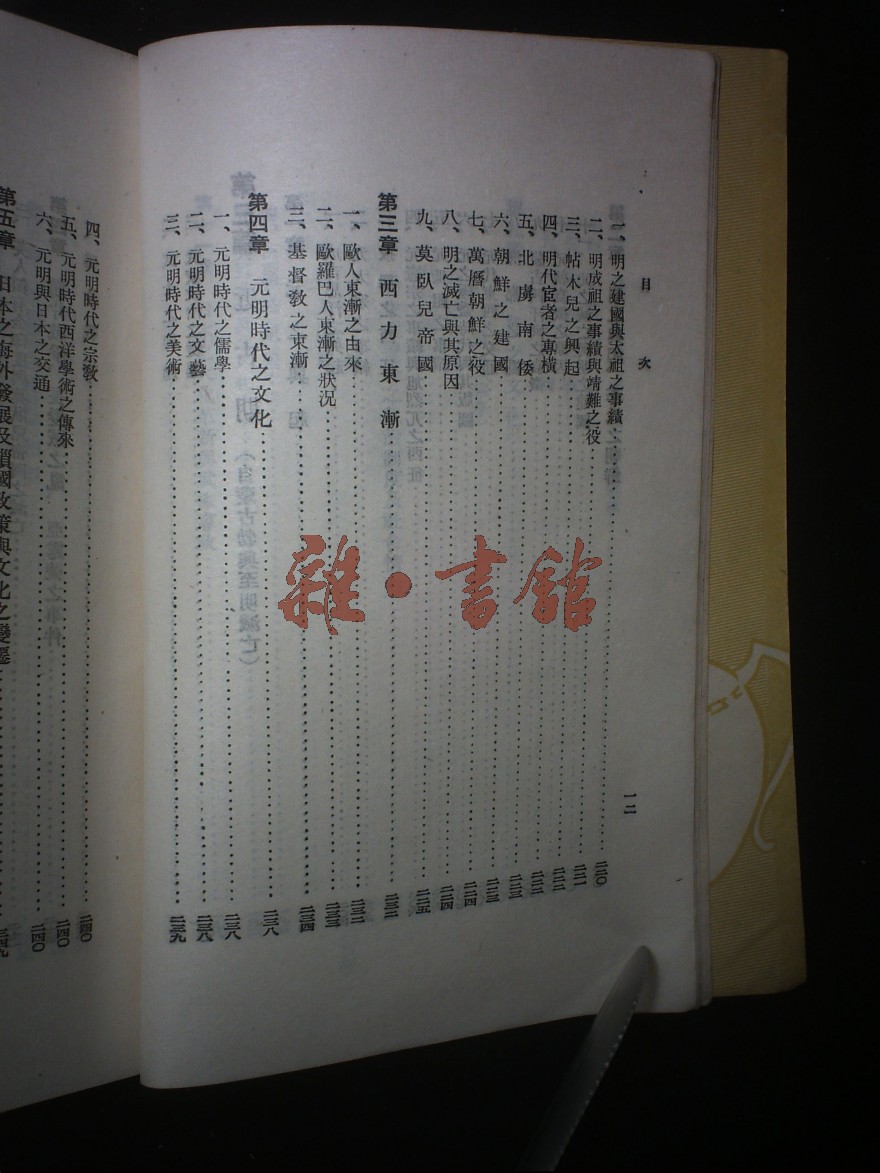 目次
一二
一、明之建國與太祖之事績 二二〇
二、明成祖之事績與靖難之役 二二一
三、帖木兒之興起
四、明代宦者之專橫
五、北虜南倭
六、朝鮮之建國
七、萬曆朝鮮之役 二二四
八、明之滅亡與其原因 二二四
九、莫臥兒帝國 二二五
第三章 西力東漸 二三二
一、歐人東漸之由來 二三二
二、歐羅巴人東漸之狀況
三、基督敎之東漸 二三四
第四章 元明時代之文化 二三八
一、元明時代之儒學 二三八
二、元明時代之文藝 二三八
三、元明時代之美術 二三九
四、元明時代之宗敎 二四〇
五、元明時代西洋學術之傳來 二四〇
六、元明與日本之交通 二四〇
第五章 日本之海外發展及鎖國政策與文化之變遷 二四九
雜·書館